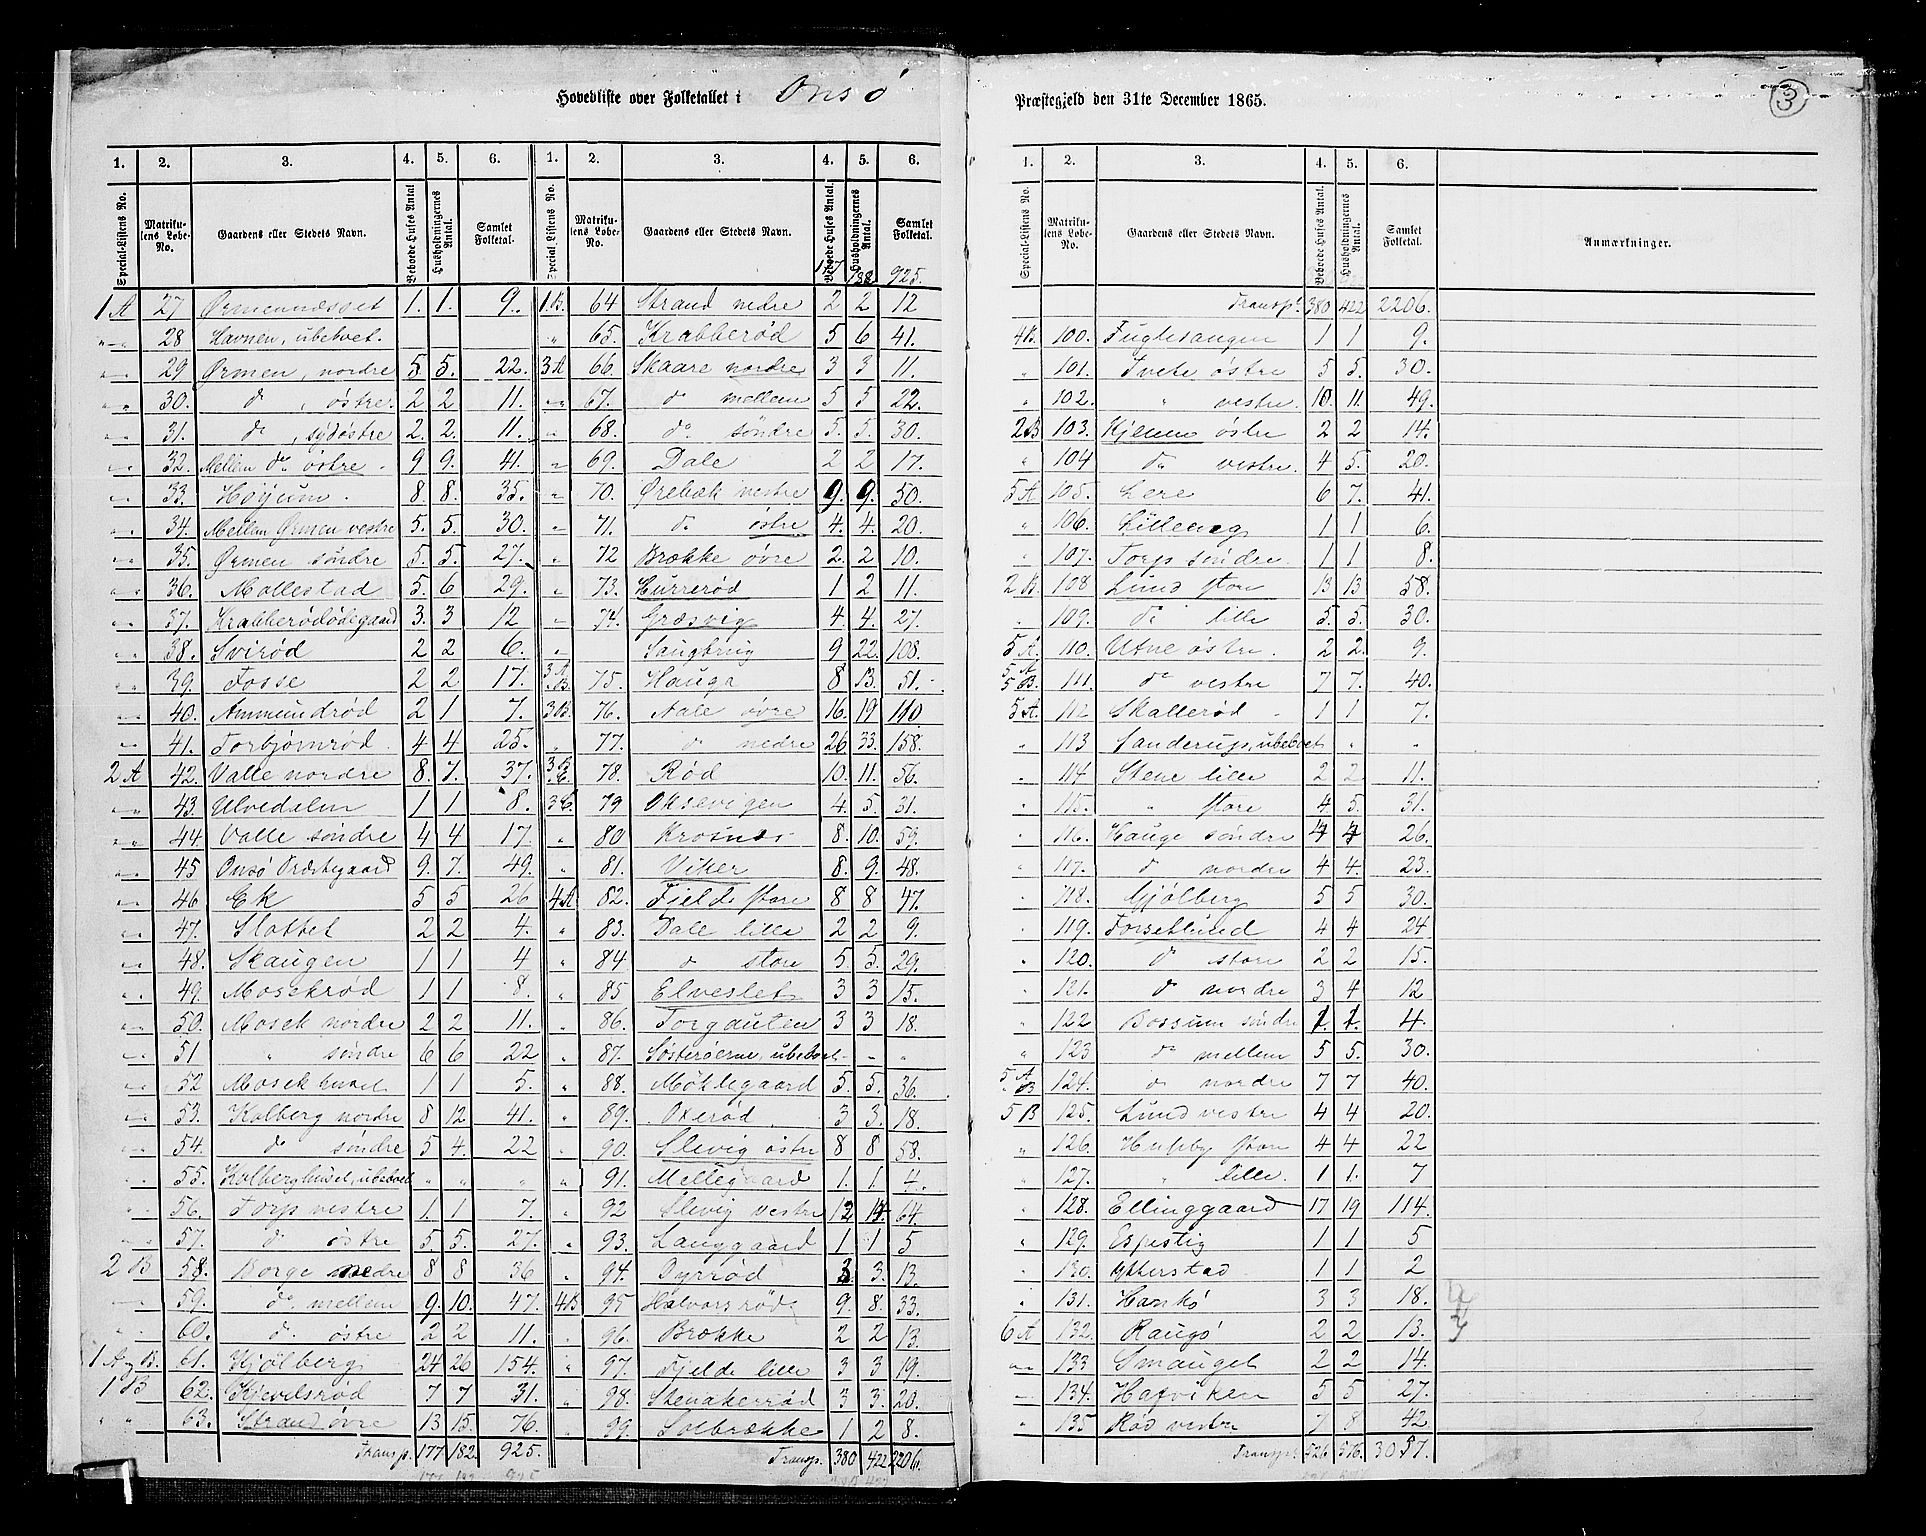 Hovedliste over Folketallet i Onsö Præstegjeld den 31te December 1865.
3
1. 2. 3. 4. 5. 6. 1. 2. 3. 4. 5. 6.
Special-Listens No. Matrikulens Løbe-No. Gaardens eller Stedets Navn. Beboede Huses Antal Husholdningernes Antal. Samlet Folketal. Special Listens No. Matrikulens Løbe-No. Gaardens eller Stedets Navn. Beboede Huses Antal. Husholdningernes Antal. Samlet Folketal.
177 182 925.
1 A 27 Ørmennæsset 1. 1. 9. 1.B. 64 Strand nedre 2 2 12
" " 28 Havnen, ubeboet. " 65. Krabberød 5 6 41.
" " 29 Ørmen, nordre 5 5. 22. 3 A 66. Skaare nordre 3 3 11.
" " 30. do , östre. 2 2 11. " " 67. do mellem 5 5 22.
" " 31. do , sydöstre 2. 2. 11. " 68. do söndre 5. 5. 30.
" " 32. Mellem do östre. 9 9. 41. " 69. Dale 2 2 17.
" " 33. Höijum. 8. 8. 35. " 70. Ørebæk vestre 9. 9. 50.
" " 34. Mellem Ørmen vestre 5. 5. 30. " 71. do östre 4. 4. 20.
" " 35. Ørmen söndre 5. 5. 27. " 72 Brække övre 2. 2 10.
" " 36. Mollestad 5. 6 29. " 73. Hurrerød 1 2 11.
" " 37. Krabberødödegaard 3. 3 12 " 74. Græsvig 4. 4. 27.
" " 38. Svirød 2 2 6. " Saugbrug 9 22 108.
" " 39. Fosse 2 2 17. 3 A B. 75. Hauga 8 13. 51.
" " 40. Ammundrød 2 1 7. 3 B. 76. Aale övre 16. 19 110
" " 41. Torbjørnrød 4 4 25. " 77. do nedre 26 33. 158.
2 A 42. Valle nordre 8. 7. 37. 3 B. C. 78. Rød 10. 11. 56.
" " 43. Ulvedalen 1 1 8. 3 C. 79 Oksevigen 4. 5 31.
" " 44. Valle söndre 4 4 17. " 80 Krosnæs 8. 10. 59.
" " 45 Onsö Præstegaard 9. 7. 49. " 81. Viker 8. 9. 48.
" " 46 Ek 5 5 26 4 A 82. Fjelde store 8 8 47.
" " 47. Slottet 2 2 4. " 83. Dale lille 2 2 9.
" " 48. Skaugen 1 1 4 " 84 do store 5. 5. 29.
" " 49. Mosekrød 1 1 8. " 85 Elveslet 3 3 15.
" " 50. Mosek nordre 2 2 11. " 86. Torgauten 3 3 18.
" " 51 " söndre 6 6 22 " 87. Søsterøerne, ubeboet - - "
" " 52 Mosekhuset 1 1 5. " 88. Møklegaard 5 5. 36.
" " 53. Kolberg nordre 8 12 41. " 89. Oxerød 3 3. 18.
" " 54. do söndre 5 4. 22 " 90. Slevig östre 8 8 58.
" 55. Kolberghuset, ubeboet " " " " 91. Mellegaard 1. 1. 4.
" " 56. Torp vestre 1. 1 7. " 92 Slevig vestre 12 14. 64
" " 57. do östre 5 5. 27. " 93. Langgaard 1 1 5
2 B 58. Borge nedre 8 8 36 " 94. Dyrrød 3 3. 13.
" " 59. do mellem 9. 10. 47. 4 B 95 Halvorsröd 9. 8. 33.
" " 60. do östre 2 2 11. " 96. Brække 2 2 13.
1 A og B. 61. Kjölberg 24 26 154. " 97. Fjelde lille 3 3 19.
1 B 62. Kjevelsrød 7 7 31. " 98. Stenakerrød 3 3. 20.
" " 63. Strand övre 13 15. 76. " 99. Solbrække 1 2 8.
Transp. 177 182. 925. Transp. 380 422 2206.
1. 2. 3. 4. 5. 6.
Special-Listens No. Matrikulens Løbe-No. Gaardens eller Stedets Navn. Beboede Huses Antal. Husholdningernes Antal. Samlet Folketal. Anmærkninger.
Transpt. 380 422 2206.
4 B. 100. Fuglesangen 1 1 9.
" 101. Tvete östre 5 5. 30.
" 102. " vestre. 10. 11. 49.
2 B 103. Kjenne östre 2 2 14.
" 104 do vestre. 4 5. 20.
5 A 105. Lere 6 7. 41.
" 106. Lilleneg 1 1 6.
" 107. Torp söndre. 1 1 8.
2 B. 108 Lund store 13 13 58.
" 109. do lille 5. 5. 30.
5 A. 110. Utne östre. 2 2. 9.
5 A 5 B. 111. do vestre 7 7. 40.
5 A. 112 Skallerød 1 1 7.
" 113 Sanderup, ubeboet " "
" 114 Stene lille 2 2 11.
" 115. " store 4 5. 31.
" 116. Hauge söndre 4 4 26.
" 117. do nordre 4 4. 23.
" 118. Gjölberg 5 5 30.
" 119. Forsetlund 4 4 24
" 120. do store 2 2 15.
" 121. do nordre 3 4 12
" 122 Bossum söndre 1. 1. 4.
" 123 do mellem 5 5. 30.
5 A B 124. do nordre 7 7 40.
5 B 125. Lund vestre 4 4 20.
" 126. Huseby store 4 4 22
" 127. " lille. 1 1. 7
" 128. Ellinggaard 17 19 114.
" 129. Espestig 1 1 5
" 130. Ytterstad 1 1 2
" 131. Hankö 3 3 18.
6 A 132. Raugö 2 2 13.
" " 133 Smauget 2 2 14.
" 134. Hafviken 5 5 27.
" 135 Rød vestre 7 8 42.
Transpt. 526 576. 3057.